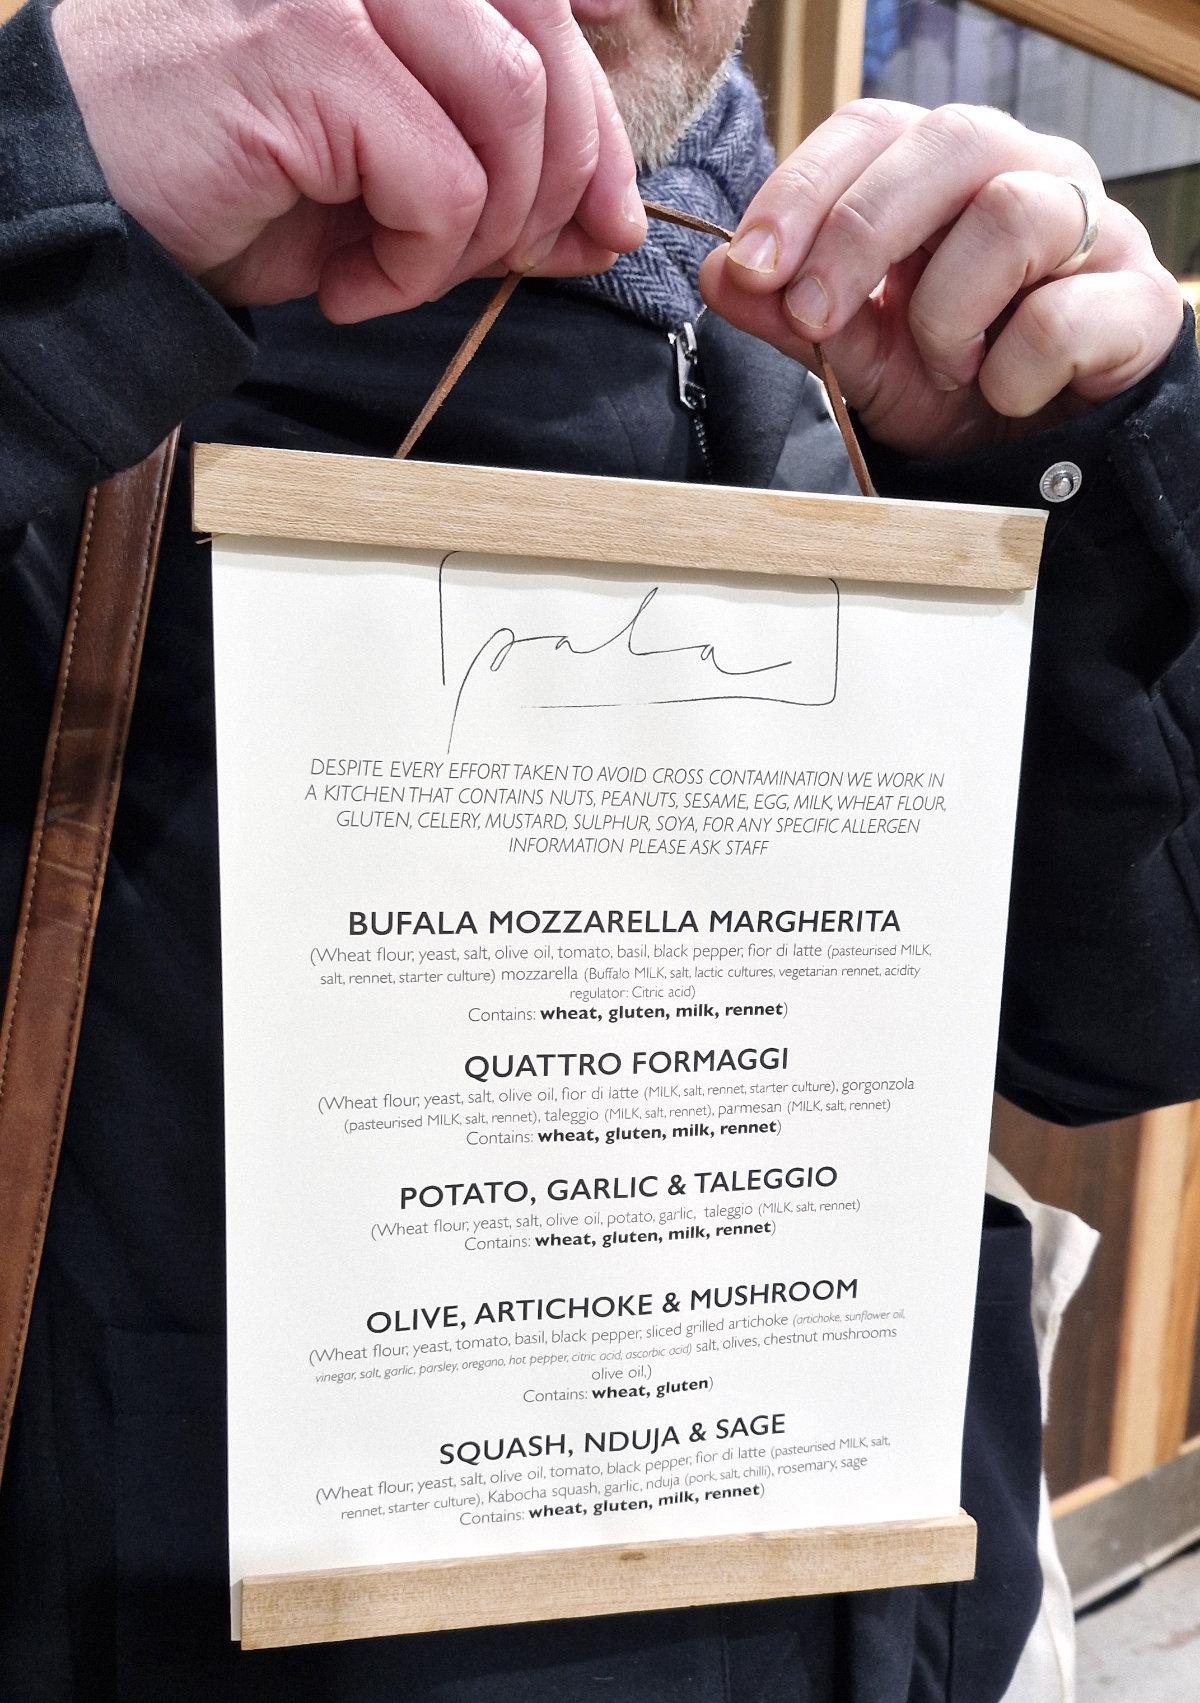 pala
DESPITE EVERY EFFORT TAKEN TO AVOID CROSS CONTAMINATION WE WORK IN
A KITCHEN THAT CONTAINS NUTS, PEANUTS, SESAME, EGG, MILK, WHEAT FLOUR,
GLUTEN, CELERY, MUSTARD, SULPHUR, SOYA, FOR ANY SPECIFIC ALLERGEN
INFORMATION PLEASE ASK STAFF
BUFALA MOZZARELLA MARGHERITA
(Wheat flour, yeast, salt, olive oil, tomato, basil, black pepper, fior di latte (pasteurised MILK,
salt, rennet, starter culture) mozzarella (Buffalo MILK, salt, lactic cultures, vegetarian rennet, acidity
regulator: Citric acid)
Contains: wheat, gluten, milk, rennet)
QUATTRO FORMAGGI
(Wheat flour, yeast, salt, olive oil, fior di latte (MILK, salt, rennet, starter culture), gorgonzola
(pasteurised MILK, salt, rennet), taleggio (MILK, salt, rennet), parmesan (MILK, salt, rennet)
Contains: wheat, gluten, milk, rennet)
POTATO, GARLIC & TALEGGIO
(Wheat flour, yeast, salt, olive oil, potato, garlic, taleggio (MILK, salt, rennet)
Contains: wheat, gluten, milk, rennet)
OLIVE, ARTICHOKE & MUSHROOM
(Wheat flour, yeast, tomato, basil, black pepper, sliced grilled artichoke (artichoke, sunflower oil,
vinegar, salt, garlic, parsley, oregano, hot pepper, citric acid, ascorbic acid) salt, olives, chestnut mushrooms
olive oil,)
Contains: wheat, gluten)
SQUASH, NDUJA & SAGE
(Wheat flour, yeast, salt, olive oil, tomato, black pepper, fior di latte (pasteurised MILK, salt,
rennet, starter culture), Kabocha squash, garlic, nduja (pork, salt, chilli), rosemary, sage
Contains: wheat, gluten, milk, rennet)